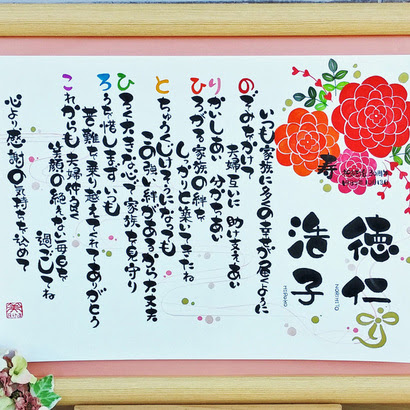 徳仁
NORIHITO
浩子
HIROKO
寿
いつも家族に多くの幸せが届くように
のぞみをかけて
夫婦互いに 助け支えあい
りかいしあい 分かちあい
ひろがる家族の絆を
しっかりと築いてきたね
とちゅうくじけそうになっても
この強い絆があるから大丈夫
ひろく大きな心で家族を見守り
ろうを惜しまずいつも
苦難を乗り越えてくれてありがとう
これからも 夫婦仲良く
笑顔の絶えない毎日を
過ごしてね
心より感謝の気持ちを込めて